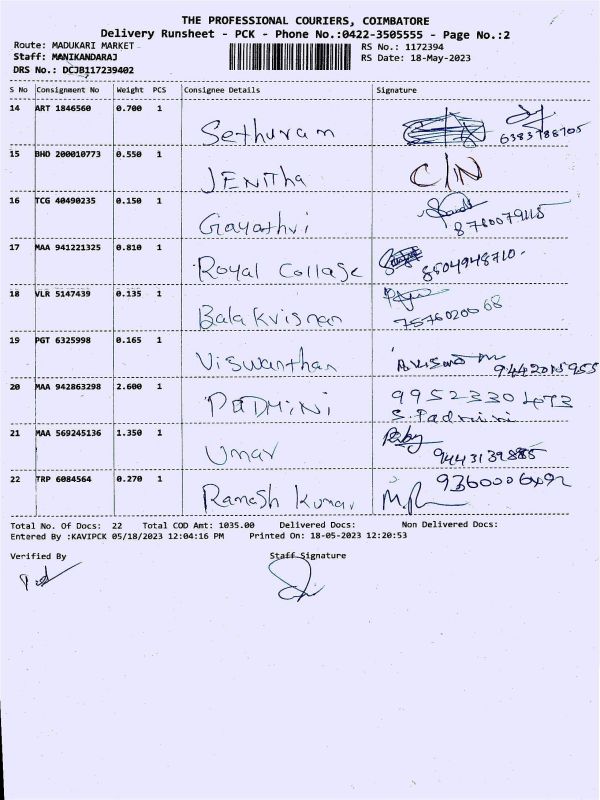 THE PROFESSIONAL COURIERS, COIMBATORE
Delivery Runsheet - PCK - Phone No.:0422-3505555 - Page No.:2
Route: MADUKARI MARKET RS No.: 1172394
Staff: MANIKANDARAJ RS Date: 18-May-2023
DRS No.: DCJB117239402
S No Consignment No Weight PCS Consignee Details Signature
14 ART 1846560 0.700 1 Sethuram 6383788705
15 BHO 200010773 0.550 1 JENITha C/N
16 TCG 40490235 0.150 1 Gayathri 8760079115
17 MAA 941221325 0.810 1 Royal Collage 8504948710
18 VLR 5147439 0.135 1 Balakrisnan 7576020068
19 PGT 6325998 0.165 1 Viswanthan
20 MAA 942863298 2.600 1 PADMiNi 9952330473
S. Padmini
21 MAA 569245136 1.350 1 Umar
22 TRP 6084564 0.270 1 Ramesh Kumar
Total No. Of Docs: 22 Total COD Amt: 1035.00 Delivered Docs: Non Delivered Docs:
Entered By :KAVIPCK 05/18/2023 12:04:16 PM Printed On: 18-05-2023 12:20:53
Verified By Staff Signature